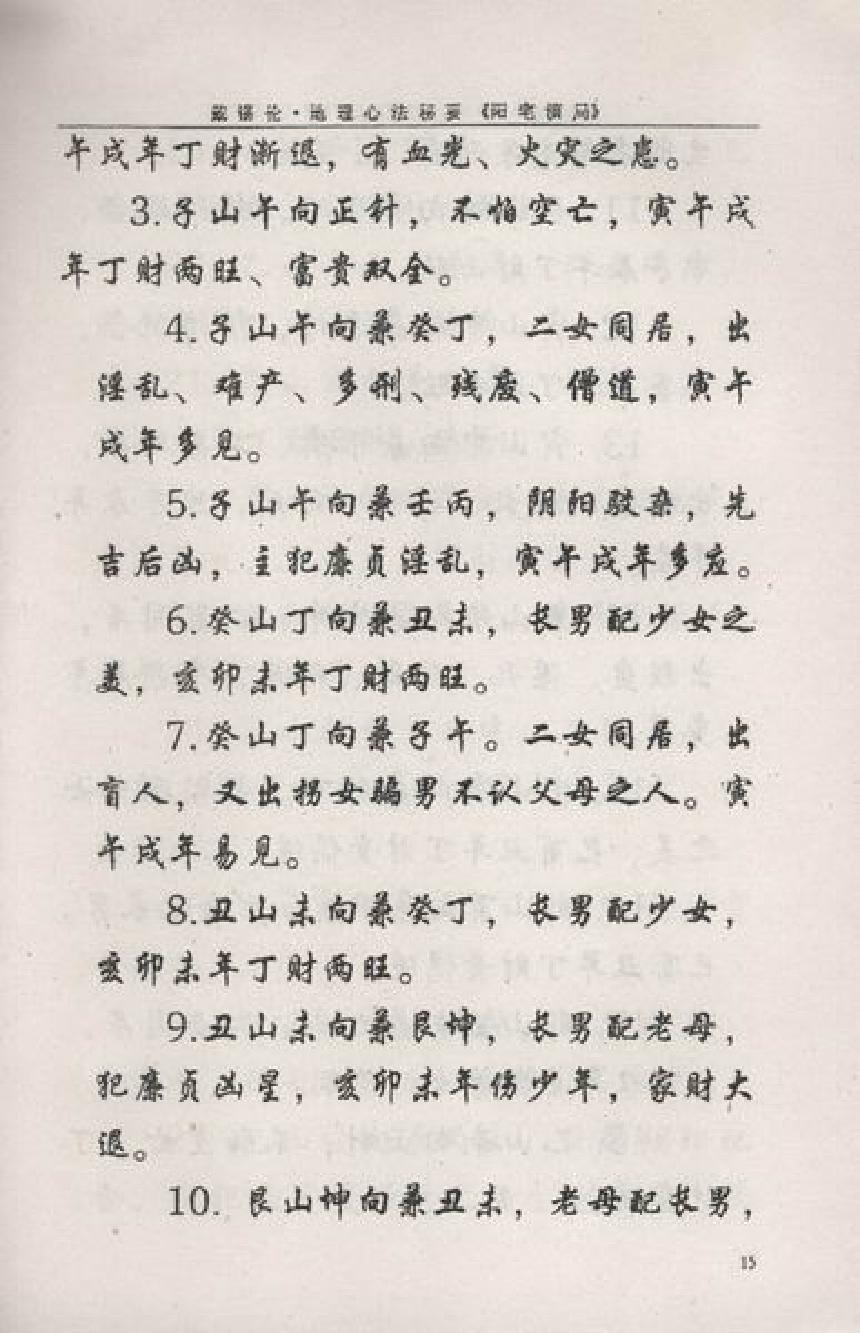 戴锡伦·地理心法秘要《阳宅倒局》
午戌年丁财渐退，有血光、火灾之患。
3.子山午向正针，不怕空亡，寅午戌
年丁财两旺、富贵双全。
4.子山午向兼癸丁，二女同居，出
淫乱、难产、多刑、残废、僧道，寅午
戌年多见。
5.子山午向兼壬丙，阴阳驳杂，先
吉后凶，主犯廉贞淫乱，寅午戌年多应。
6.癸山丁向兼丑未，长男配少女之
美，亥卯未年丁财两旺。
7.癸山丁向兼子午。二女同居，出
盲人，又出拐女骗男不认父母之人。寅
午戌年易见。
8.丑山未向兼癸丁，长男配少女，
亥卯未年丁财两旺。
9.丑山未向兼艮坤，长男配老母，
犯廉贞凶星，亥卯未年伤少年，家财大
退。
10. 艮山坤向兼丑未，老母配长男，
15